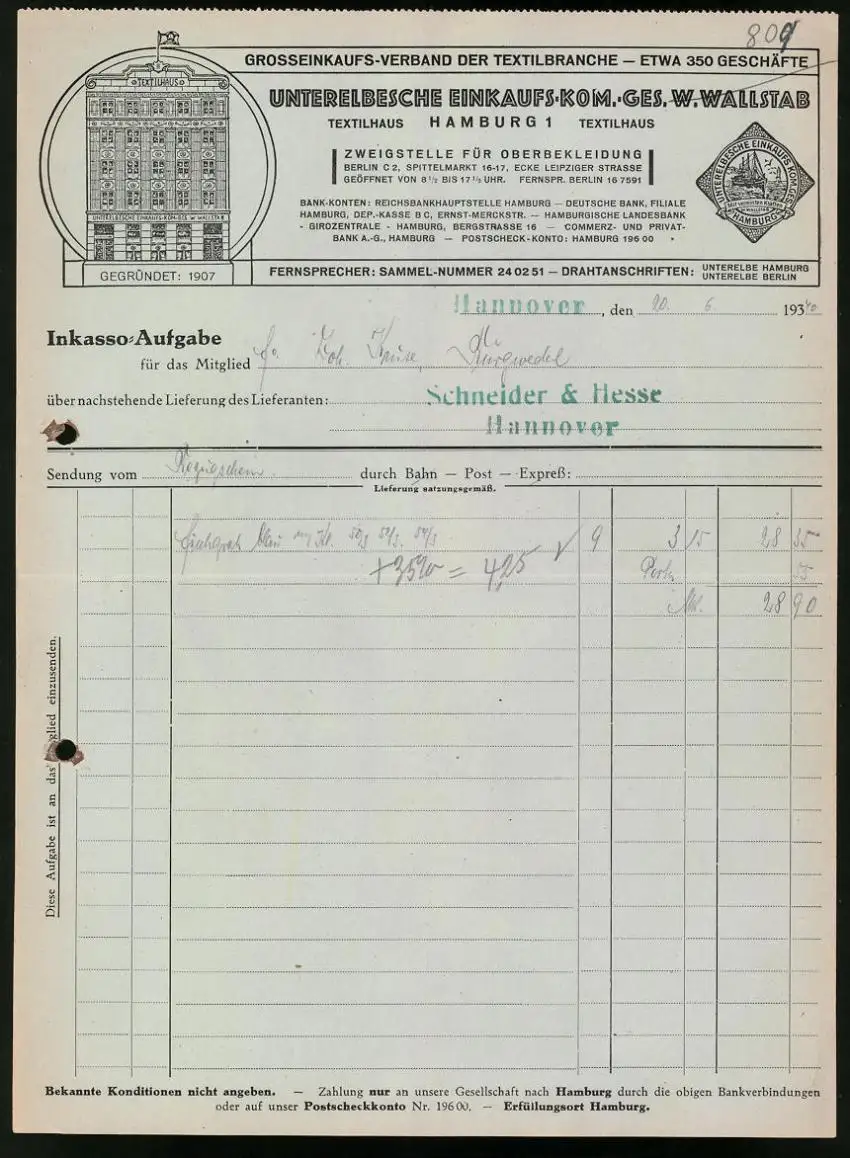 809
GROSSEINKAUFS-VERBAND DER TEXTILBRANCHE — ETWA 350 GESCHÄFTE
TEXTILHAUS
UNTERELBESCHE EINKAUFS-KOM.-GES. W. WALLSTAB
TEXTILHAUS HAMBURG 1 TEXTILHAUS
ZWEIGSTELLE FÜR OBERBEKLEIDUNG
BERLIN C 2, SPITTELMARKT 16-17, ECKE LEIPZIGER STRASSE
GEÖFFNET VON 8 1/2 BIS 17 1/2 UHR. FERNSPR. BERLIN 16 7591
BANK-KONTEN: REICHSBANKHAUPTSTELLE HAMBURG — DEUTSCHE BANK, FILIALE
HAMBURG, DEP.-KASSE B C, ERNST-MERCKSTR. — HAMBURGISCHE LANDESBANK
- GIROZENTRALE - HAMBURG, BERGSTRASSE 16 — COMMERZ- UND PRIVAT-
BANK A.-G., HAMBURG — POSTSCHECK-KONTO: HAMBURG 196 00
UNTERELBESCHE EINKAUFS-KOM.-GES.
W. WALLSTAB
HAMBURG
UNTERELBESCHE EINKAUFS-KOM.-GES. W. WALLSTAB
GEGRÜNDET: 1907
FERNSPRECHER: SAMMEL-NUMMER 24 02 51 — DRAHTANSCHRIFTEN: UNTERELBE HAMBURG
UNTERELBE BERLIN
Hannover, den 20. 6. 1940
Inkasso-Aufgabe
für das Mitglied Fa. Joh. Krause, Burgwedel
über nachstehende Lieferung des Lieferanten: Schneider & Hesse
Hannover
Sendung vom Bezugschein durch Bahn — Post — Expreß:
Lieferung satzungsgemäß.
blau 50/3 52/3 54/3 9 3 15 28 35
+35% = 4,25 √ Porto 55
Mk. 28 90
Diese Aufgabe ist an das Mitglied einzusenden.
Bekannte Konditionen nicht angeben. — Zahlung nur an unsere Gesellschaft nach Hamburg durch die obigen Bankverbindungen
oder auf unser Postscheckkonto Nr. 196 00. — Erfüllungsort Hamburg.